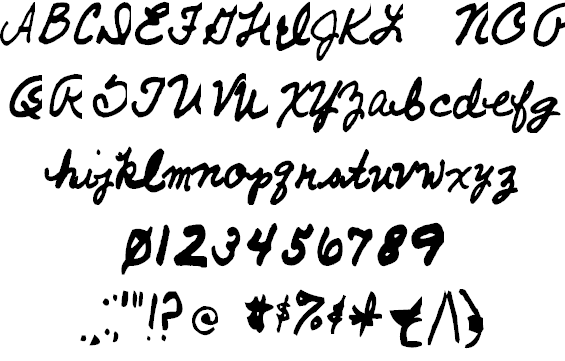 ABCDEFGHIJKL NOP
QRSTUVWXYZabcdefg
hijklmnopqrstuvwxyz
0123456789
.,:;'""!? @ #$%&* {/\)